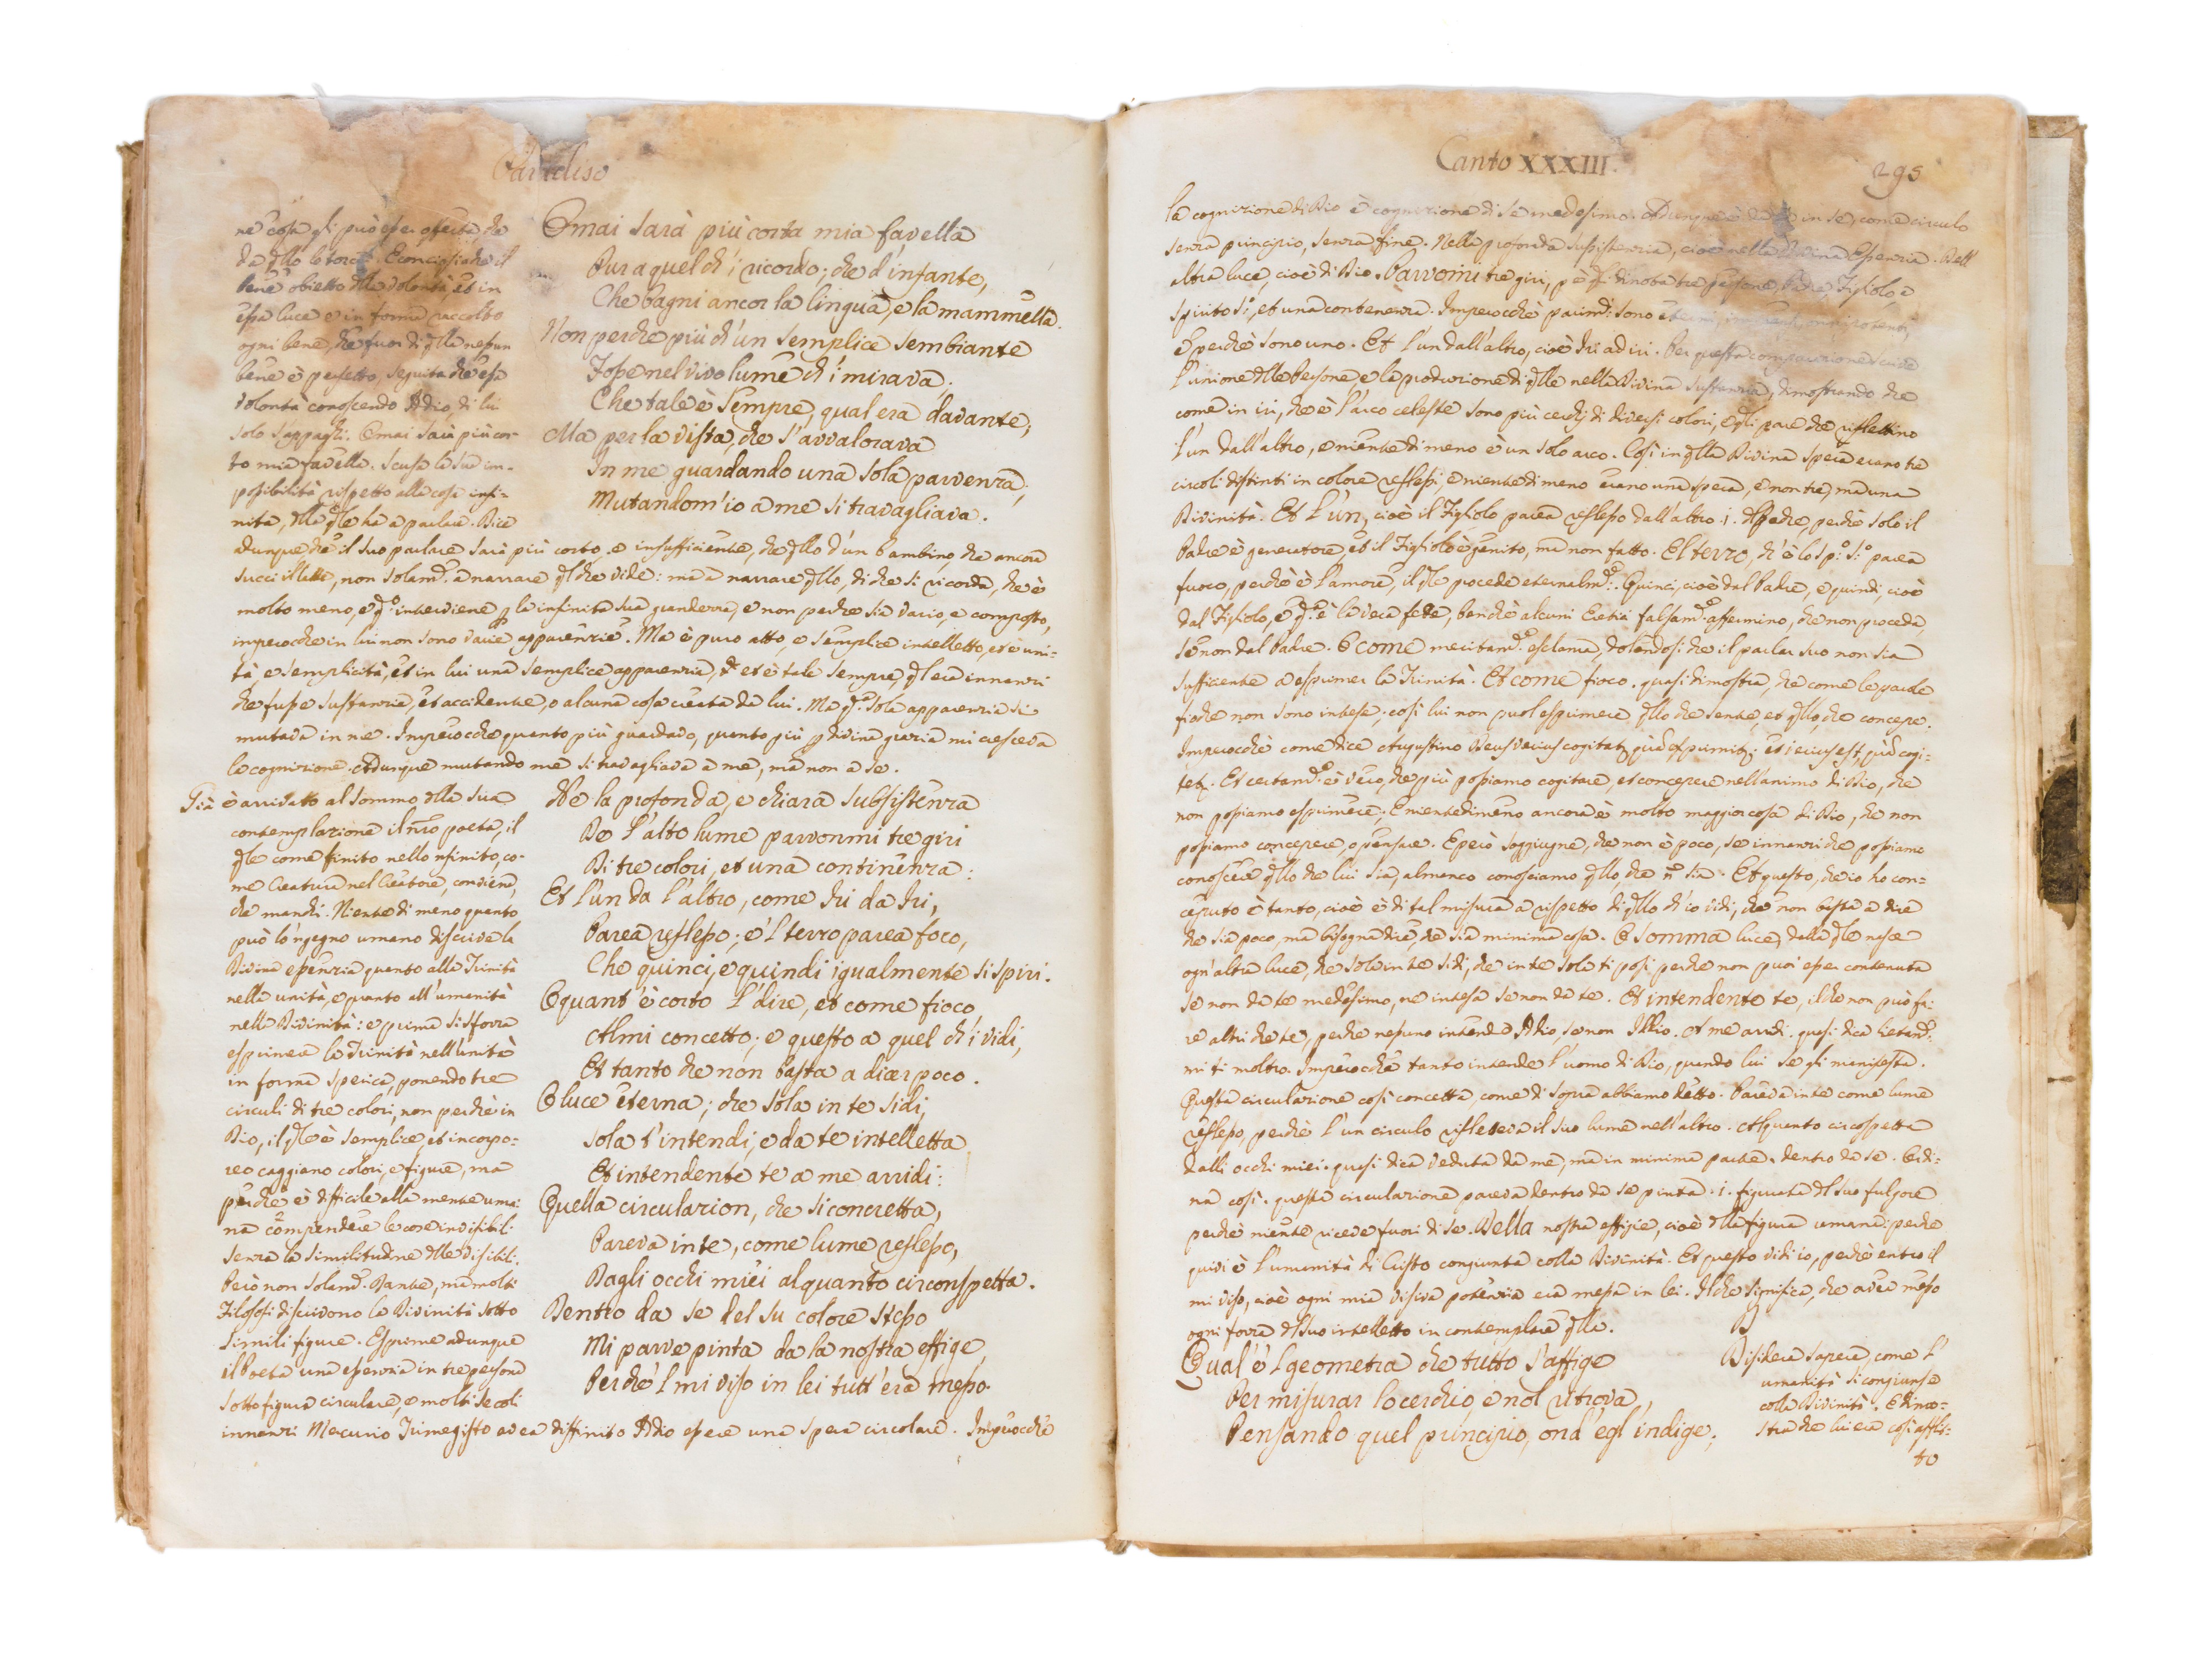 Paradiso
ne cosa gli può esser offerta, che
da qllo lo torca. Conciosiache il
bene obietto dlla volontà, et in
essa luce è in forma raccolto
ogni bene, che fuor di qlla nessun
bene è perfetto, seguita che essa
volontà conoscendo Iddio, di lui
solo s'appaghi. Omai sarà più cor-
to mia favella. Scusa la sua im-
possibilità rispetto alla cosa infi-
nita, dlla qle ha a parlare. Dice
Omai sarà più corta mia favella
Pur a quel ch'i' ricordo; che d'infante,
Che bagni ancor la lingua, e la mammella.
Non perchè più ch'un semplice sembiante
Fosse nel vivo lume ch'i' mirava;
Che tale è sempre, qual era davante;
Ma per la vista, che s'avvalorava
In me guardando una sola parvenza;
Mutandom'io a me si travagliava.
adunque che il suo parlare sarà più corto, e insufficiente, che qllo d'un bambino, che ancora
succi il latte, non solamte. a narrare ql che vide: ma a narrare qllo, di che si ricorda, che è
molto meno, e qo. interviene p la infinita sua grandezza, e non perche sia vario, e composto,
imperocche in lui non sono varie apparenzie. Ma è puro atto, e semplice intelletto, et è uni-
tà, e semplicità, et in lui una semplice apparenzia, et è tale sempre, ql era innanzi
che fusse sustanzia, et accidente, o alcuna cosa creata da lui. Ma qa. sola apparenzia si
mutava in me. Imperocche quanto più guardavo, quanto più p divina grazia mi cresceva
la cognizione. Adunque mutando me si travagliava a me, ma non a se.
Già è arrivato al sommo dlla sua
contemplazione il nro poeta, il
qle come finito nello 'nfinito, co-
me Creatura nel Creatore, conviene,
che manchi. Nientedimeno quanto
può lo 'ngegno umano discrive la
Divina essenzia quanto alla Trinità
nella unità, e quanto all'umanità
nella Divinità: e prima si sforza
esprimer la Trinità nell'unità
in forma sperica, ponendo tre
circuli di tre colori, non perchè in
Dio, il qle è semplice, et incorpo-
reo caggiano colori, e figure, ma
perchè è difficile alla mente uma-
na comprendere le cose invisibili
senza la similitudine dlle visibili.
Però non solamte. Dante, ma molti
Filosofi discrivono la Divinità sotto
simili figure. Esprime adunque
il Poeta una essenzia in tre persone
sotto figura circulare, e molti secoli
innanzi Mercurio Trimegisto avea diffinito Iddio essere una spera circolare. Imperocchè
Ne la profonda, e chiara subsistenza
De l'alto lume parvonmi tre giri
Di tre colori, et una continenza:
Et l'un da l'altro, come Iri da Iri,
Parea reflesso; e 'l terzo parea foco,
Che quinci, e quindi igualmente si spiri.
O quant'è corto l'dire, et come fioco
Al mi concetto; e questo a quel ch'i' vidi,
Et tanto che non basta a dicer poco.
O luce eterna; che sola in te sidi,
Sola t'intendi, e da te intelletta
Et intendente te a me arridi:
Quella circulazion, che si concretta,
Pareva in te, come lume reflesso,
Dagli occhi miei alquanto circonspetta.
Dentro da se del su colore stesso
Mi parve pinta da la nostra effige,
Perchè 'l mi viso in lei tutt'era messo.
Canto XXXIII.
295
la cognizione di Dio è cognizione di se medesimo. Adunque è da se in se, come circulo
senza principio, senza fine. Nella profonda sussistenzia, cioè nella Divina Essenzia. Dell'
altra luce, cioè di Dio. Parvomi tre giri, pche dinota tre persone, Padre, Figliolo, e
Spirito So. et una contenenza. Imperocchè parimte. sono
e perchè sono uno. Et l'un dall'altro, cioè Iri ad iri. Per questa comparazione scrive
l'unione dlle Persone, e la produzione di qlle nella Divina sustanzia, dimostrando che
come in iri, che è l'arco celeste sono più cerchj di diversi colori, e qsti pare che reflettino
l'un dall'altro, e nientedimeno è un solo arco. Così in qlla Divina spera erano tre
circoli distinti in colore reflessi, e nientedimeno erano una spera, e non tre, ma una
Divinità. Et l'un, cioè il Figliolo parea reflesso dall'altro .i. dl padre, perchè solo il
Padre è generatore, et il Figliolo è genito, ma non fatto. El terzo, ch'è lo Spo. So. parea
fuoco, perchè è l'amore, il qle procede eternalmte. Quinci, cioè dal Padre, e quindi, cioè
dal Figliolo, e qa. è la vera fede, benchè alcuni Eretici falsamte. affermino, che non proceda,
se non dal Padre. O come meritamte. esclama, dolendosi che il parlar suo non sia
sufficiente a esprimer la Trinità. Et come fioco. quasi dimostra, che come le parole
fioche non sono intese; così lui non puol esprimere qllo che sente, et qllo, che concepe.
Imperocchè come dice Augustino Deus verius cogitat quàm exprimit; et verius est, quàm cogi-
tet. Et certamte. è vero, che più possiamo cogitare, et concepere nell'animo di Dio, che
non possiamo esprimere; E nientedimeno ancora è molto maggior cosa di Dio, che non
possiamo concepere, o pensare. E però soggiugne, che non è poco, se innanzi che possiamo
conoscere qllo che lui sia, almenco conosciamo qllo, che nō sia. Et questo, che io ho con-
ceputo è tanto, cioè è di tal misura a rispetto di qllo ch'io vidi, che non basta a dire
che sia poco, ma bisogna dire, che sia minima cosa. O somma luce, dalla qle nasce
ogn'altra luce, che sola in te sidi, che in te sola ti posi perche non puoi esser contenuta
se non da te medesimo, ne intesa se non da te. Et intendente te, il che non può fa-
re altri che te, perche nessuno intende Iddio, se non Iddio. A me arridi. quasi dica lietamte.
mi ti mostro. Imperocchè tanto intende l'uomo di Dio, quando lui se gli manifesta.
Questa circulazione così concetta, come di sopra abbiamo detto. Pareva in te come lume
reflesso, perchè l'un circulo refletteva il suo lume nell'altro. Alquanto circospetta
dalli occhi miei. quasi dica veduta da me, ma in minima parte. dentro da se. Ordi-
na così. questa circulazione pareva dentro da se pinta .i. figurata dl suo fulgore
perchè niente riceve fuori di se. Della nostra effigie, cioè dlla figura umana: perche
quivi è l'umanità di Cristo congiunta colla Divinità. Et questo vidi io, perchè entro il
mi viso, cioè ogni mia visiva potenzia era messa in lei. Il che significa, che avea messo
ogni forza dl suo intelletto in contemplare qlla.
Qual'è 'l geometra che tutto s'affige
Per misurar lo cerchio, e nol ritrova,
Pensando quel principio, ond'egl'indige;
D
Disidera sapere, come l'
umanità si congiunse
colla Divinità. E dimo-
stra che lui era così affli-
to